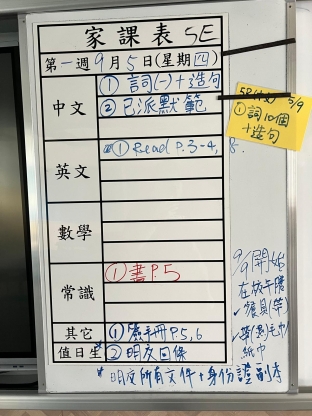 家課表 5E
第一週9月5日(星期四)
中文
① 詞(一)+造句
② 已派默範
英文
① Read P.3-4, 8.
數學
常識
① 書P.5
其它
① 手冊P.5,6
值日生
② 明交回條
* 明交所有文件+身份證副本
5/9
① 詞10個
+造句
9/9開始
在校午膳
✓餐具(帶)
✓帶毛巾
紙巾